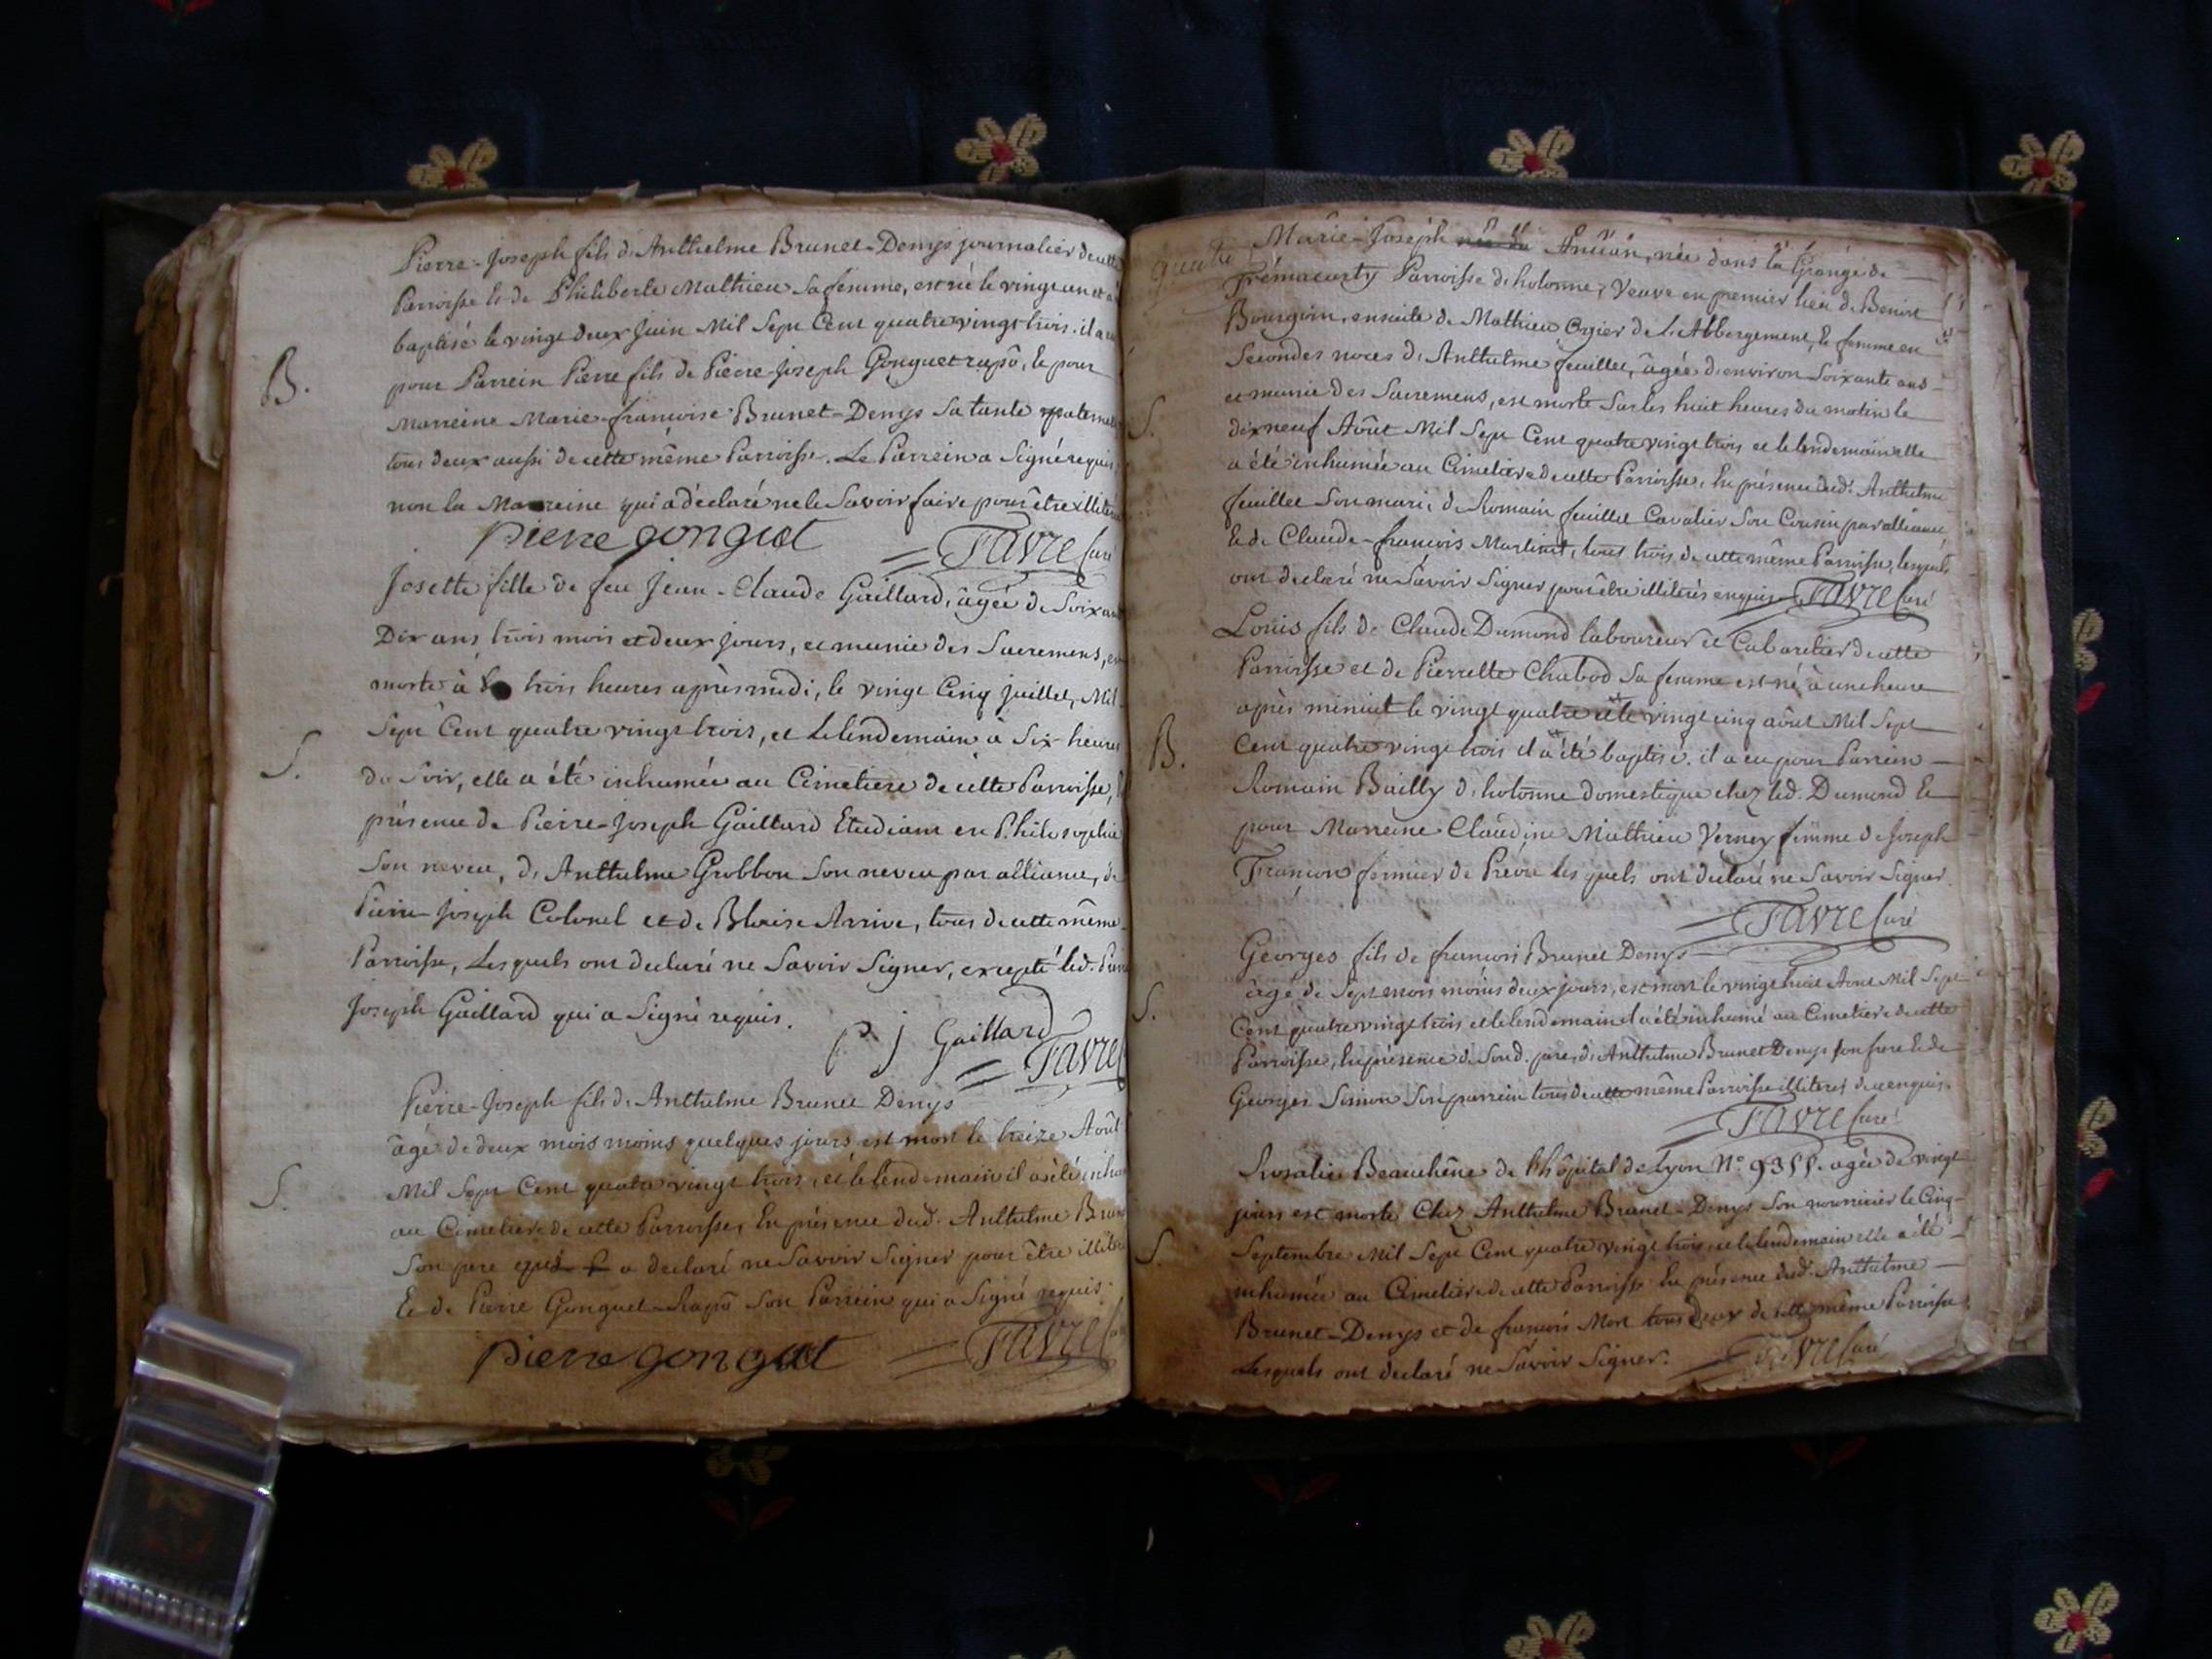 Pierre-Joseph fils d'Anthelme Brunet-Denys journalier de cette
Parroisse & de Philiberte Mathieu sa femme, est né le vingt un et a
baptisé le vingt deux Juin Mil Sept Cent quatre vingt trois. il a eu
B.
pour Parrein Pierre fils de Pierre-Joseph Gonguet rapô, & pour
Marreine Marie-françoise Brunet-Denys sa tante paternel
tous deux aussi de cette même Parroisse. Le Parrein a Signé requis
non la Marreine qui a déclaré ne le Savoir faire pour être illiteré
pierre gonguet
Favre Curé
Josette fille de feu Jean-Claude Gaillard, âgée de Soixante
Dix ans trois mois et deux jours, et munie des Sacremens, est
morte à trois heures après midi, le vingt Cinq juillet, Mil
Sept Cent quatre vingt trois, et le lendemain à Six heures
S.
du Soir, elle a été inhumée au Cimetiere de cette Parroisse,
présence de Pierre-Joseph Gaillard Etudiant en Philosophie
Son neveu, d'Anthelme Grobbon Son neveu par alliance, de
Pierre-Joseph Colonel et de Blaise Arrive, tous de cette même
Parroisse, Lesquels ont declaré ne Savoir Signer, excepté led. Pierre
Joseph Gaillard qui a Signé requis.
p. j Gaillard
Favre
Pierre-Joseph fils d'Anthelme Brunet Denys
âgé de deux mois moins quelques jours est mort le treize Août
S.
Mil Sept Cent quatre vingt trois, et le lendemain il a été inhu
au Cimetiere de cette Parroisse, En présence dud. Anthelme Brun
Son pere a declaré ne Savoir Signer pour être illiter
& de Pierre Gonguet-Rapô Son Parrein qui a Signé requis.
pierre gonguet
Favre
quatre
Marie-Joseph née dans la Grange de
Trémacurty Parroisse d'hotonne, Veuve en premier lieu de Benoit
Bourgoin, ensuite de Mathieu Ogier de L'Abbergement, & femme en
Secondes noces d'Anthelme feuillet, âgée d'environ Soixante ans
S.
et munie des Sacremens, est morte Sur les huit heures du matin le
dix neuf Août Mil Sept Cent quatre vingt trois et le lendemain elle
a été inhumée au Cimetiere de cette Parroisse, En présence dud. Anthelme
feuillet Son mari, de Romain feuillet Cavalier Son Cousin par alliance,
& de Claude-francois Martinet, tous trois de cette même Parroisse, lesquels
ont declaré ne Savoir Signer pour être illiterés enquis Favre Curé
Louis fils de Claude Dumond laboureur et Cabaretier de cette
Parroisse et de Pierrette Chabod Sa femme est né à une heure
après minuit le vingt quatre et le vingt cinq août Mil Sept
B.
Cent quatre vingt trois il a été baptisé. il a eu pour Parrein
Romain Bailly d'hotonne domestique chez led. Dumond &
pour Marreine Claudine Mathieu Verney femme de Joseph
Françon fermier de lesquels ont declaré ne Savoir Signer.
Favre Curé
Georges fils de francois Brunet Denys
âgé de Sept mois moins deux jours, est mort le vingt huit Aout Mil Sept
S.
Cent quatre vingt trois et le lendemain il a été inhumé au Cimetiere de cette
Parroisse, En présence de Sond. pere, d'Anthelme Brunet Denys son frere & de
Georges Simon Son parrein tous de cette même Parroisse illiterés de ce enquis.
Favre Curé
Rosalie Beauchêne de l'hôpital de Lyon N° 9355. agée de vingt
jours est morte Chez Anthelme Brunet-Denys Son nourricier le Cinq
S.
Septembre Mil Sept Cent quatre vingt trois, et le lendemain elle a été
inhumée au Cimetiere de cette Parroisse En présence dud. Anthelme
Brunet-Denys et de francois Mort tous deux de cette même Parroisse
Lesquels ont declaré ne Savoir Signer. Favre Curé